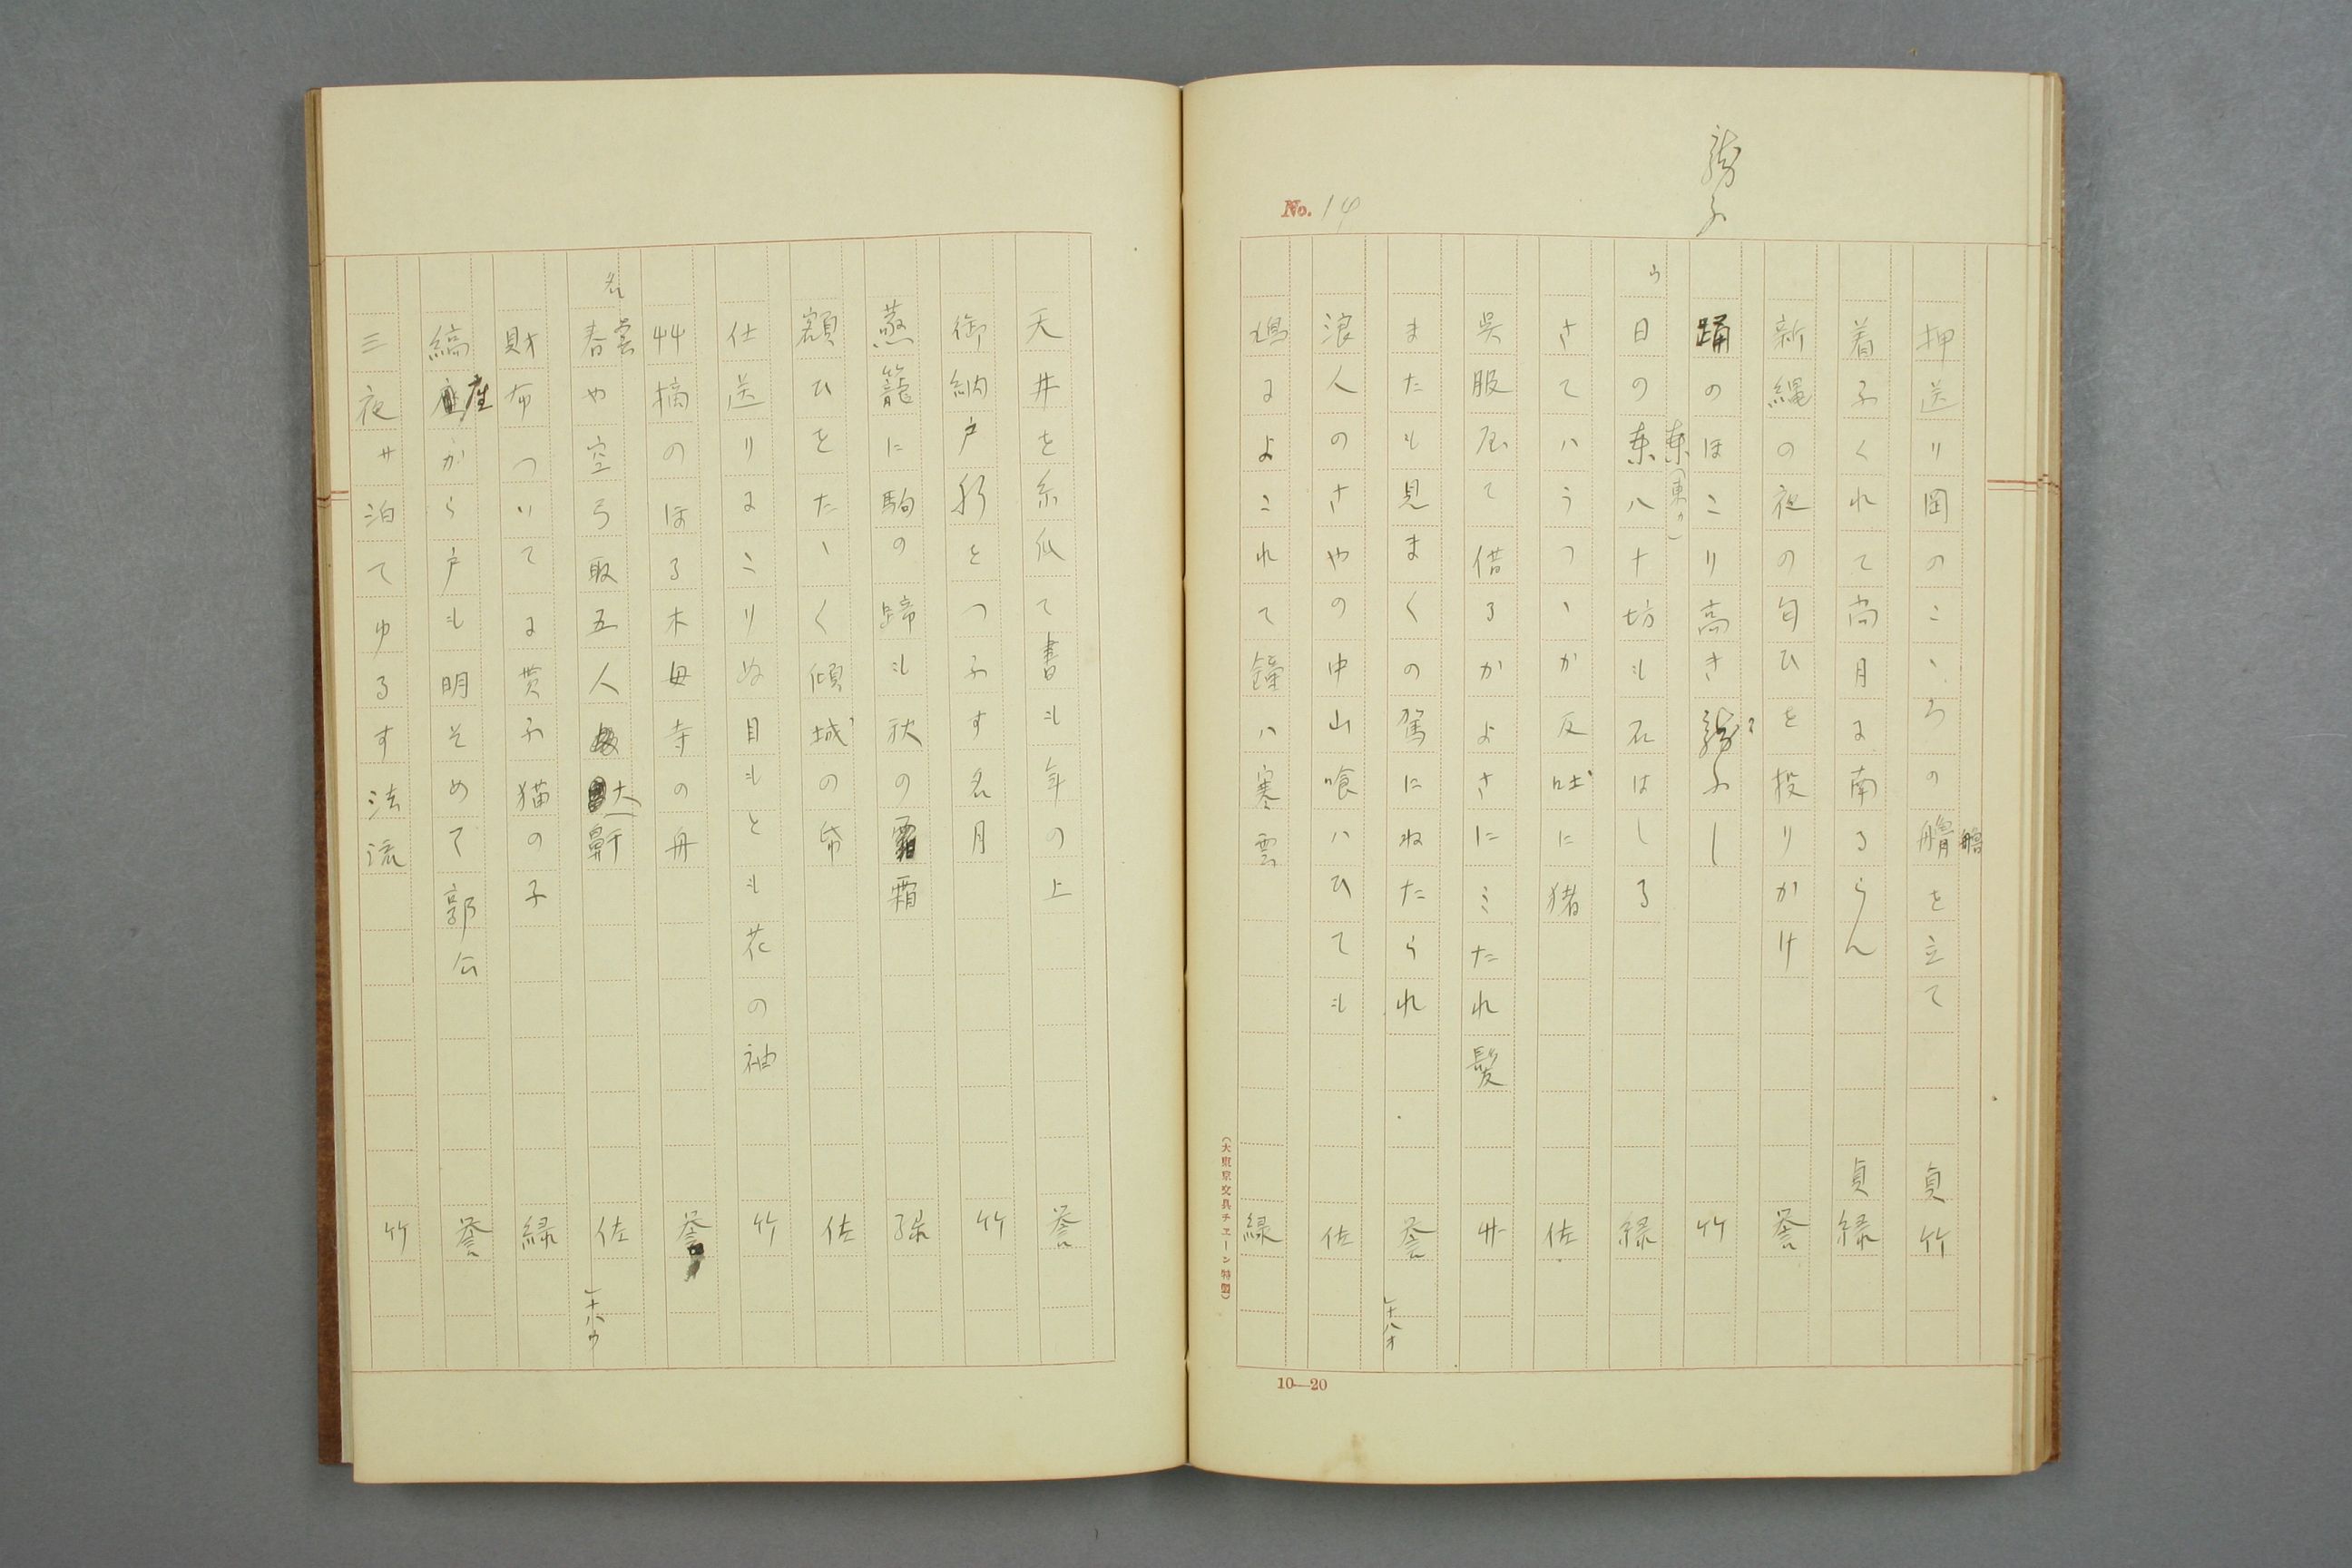 No. 14
押送り岡のこゝろの艪を立て 貞竹
艪
着ふくれて尚月に南るらん 貞緑
新縄の夜の匂ひを投りかけ 誉
踊のほこり高き ふし 竹
ウ
日の東八ナ坊も石はしる 緑
東(東カ)
さてハうつゝか反吐に猪 佐
呉服屋て借るかよさにミたれ髪 竹
またも見まくの駕にねたられ 誉
十八オ
浪人のさやの中山喰ハひても 佐
過によこれて鐘ハ寒雲 緑
(大東京文具チエーン特製)
10—20
天井を糸瓜て書も年の上 誉
御納戸形とつふす名月 竹
蒸籠に駒の蹄も秋の霜 緑
額ひをたゝく傾城の帋 佐
仕送りにこりぬ目もとも花の袖 竹
艸摘のほる木母寺の舟 誉
名
春雲や空ら取五人大鼾 佐
十八ウ
財布ついてに貰ふ猫の子 緑
縞座から戸も明そめて郭公 誉
三夜サ泊てゆるす法流 竹